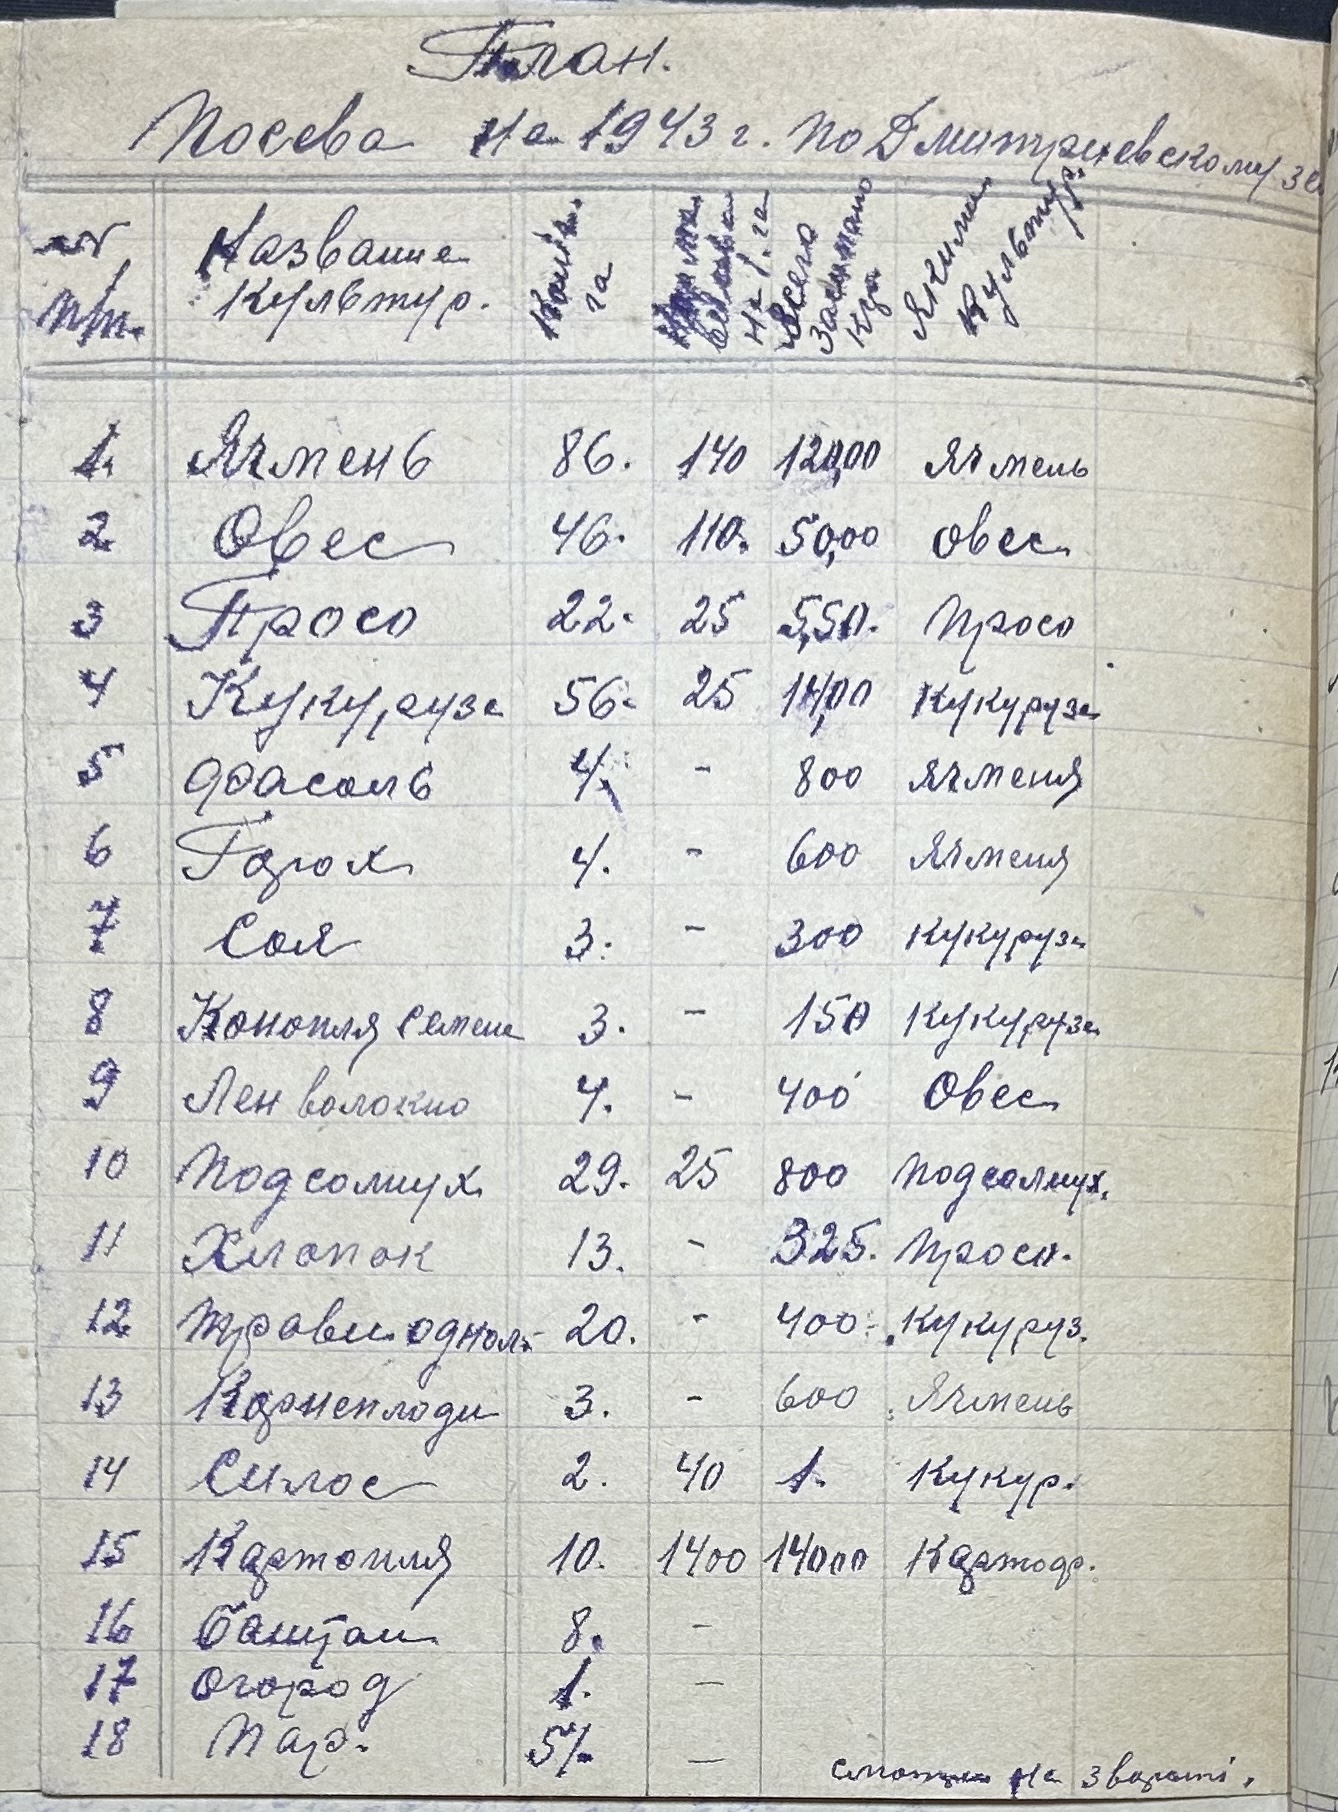 План.
Посева на 1943 г. по Дмитриевскому зе
№ п/п. Название культур. га высева на 1. га Всего засипано кгр Якими культур.
1. Ячмень 86. 140 120,00 Ячмень
2 Овес 46. 110. 50,00 Овес
3 Просо 22. 25 5,50. Просо
4 Кукуруза 56. 25 14,00 Кукуруза
5 Фасоль 4. - 800 Ячменя
6 Горох 4. - 600 Ячменя
7 Соя 3. - 300 Кукуруза
8 Конопля семена 3. - 150 Кукуруза
9 Лен волокно 4. - 400 Овес
10 Подсолнух 29. 25 800 Подсолнух.
11 Хлопок 13. - 325. Просо.
12 Трави однол. 20. - 400. Кукуруз.
13 Корнеплоди 3. - 600 Ячмень
14 Силос 2. 40 1. Кукур.
15 Картопля 10. 1400 14000 Картоф.
16 Баштан 8. -
17 Огород 1. -
18 Пар. -
на звороті.